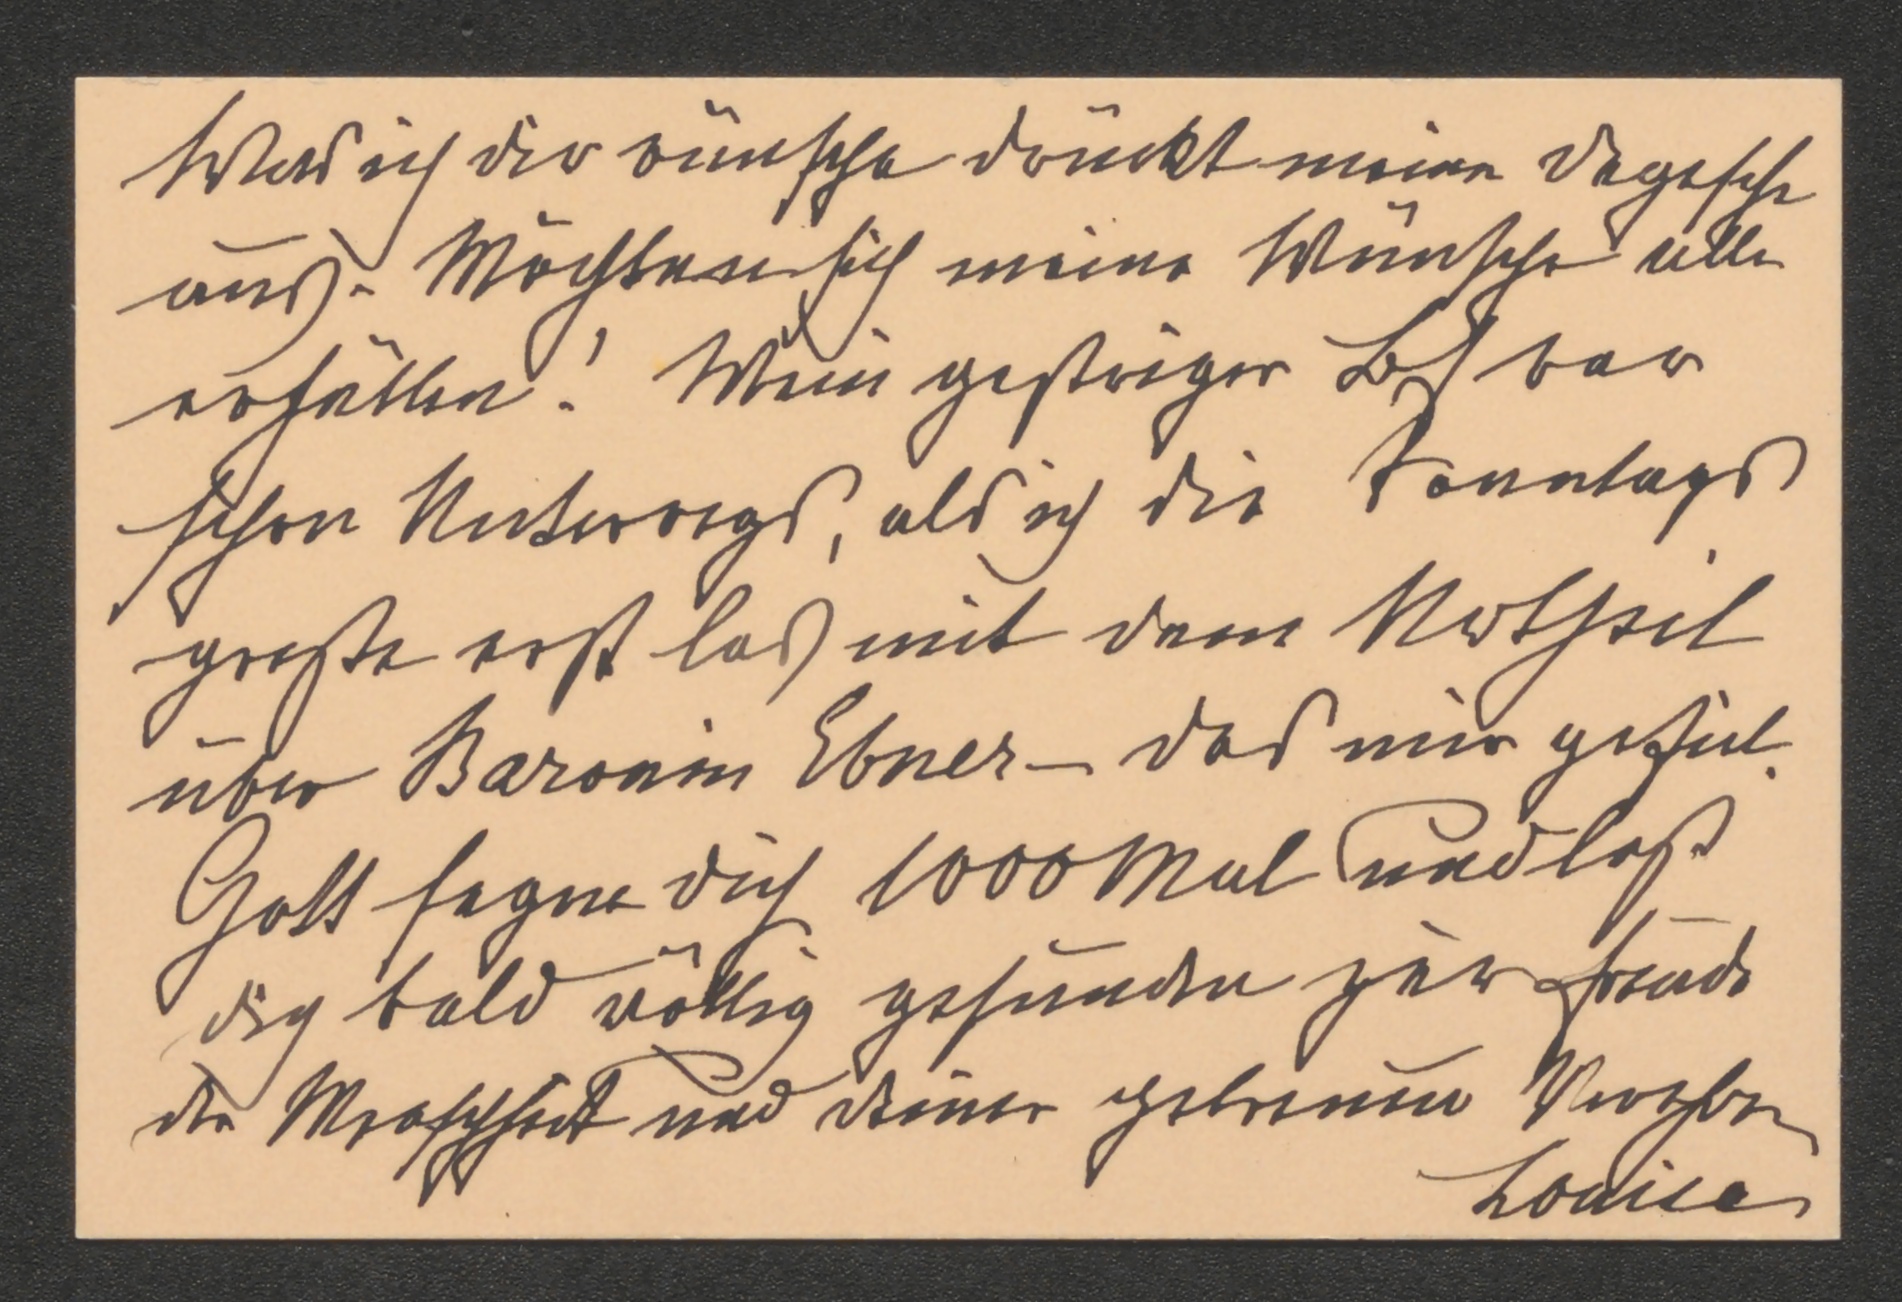 Was ich dir wünsche drückt meine Depesche
aus. Möchten sich meine Wünsche alle
erfüllen! Mein gestriger Bf war
schon Unterwegs, als ich die Sonntags
presse erst las mit dem Urtheil
über Baronin Ebner – das mir gefiel.
Gott segne dich 1000 Mal und laß
dich bald völlig gesunden zur Freude
der Menschheit und deiner getreuen
Louise